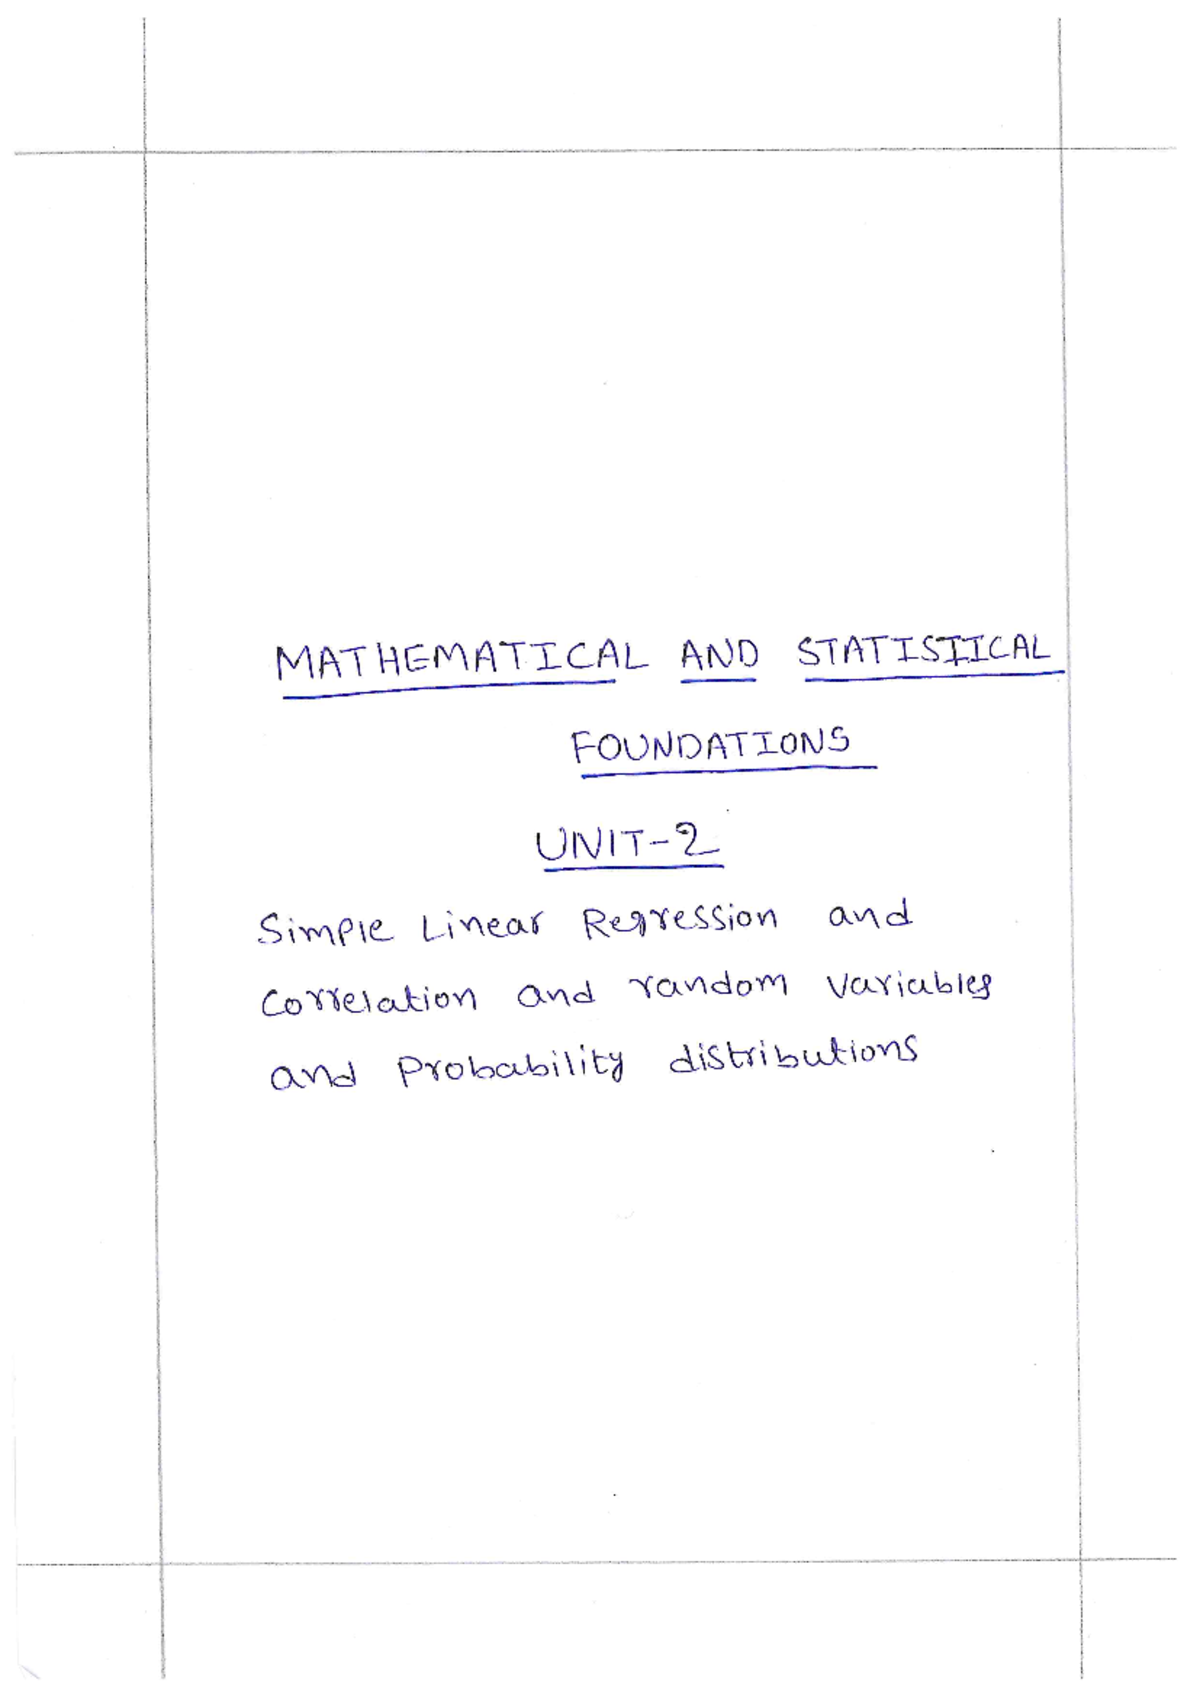 MATHEMATICAL AND STATISTICAL
FOUNDATIONS
UNIT-2
Simple Linear Regression and
Correlation and random variables
and Probability distributions